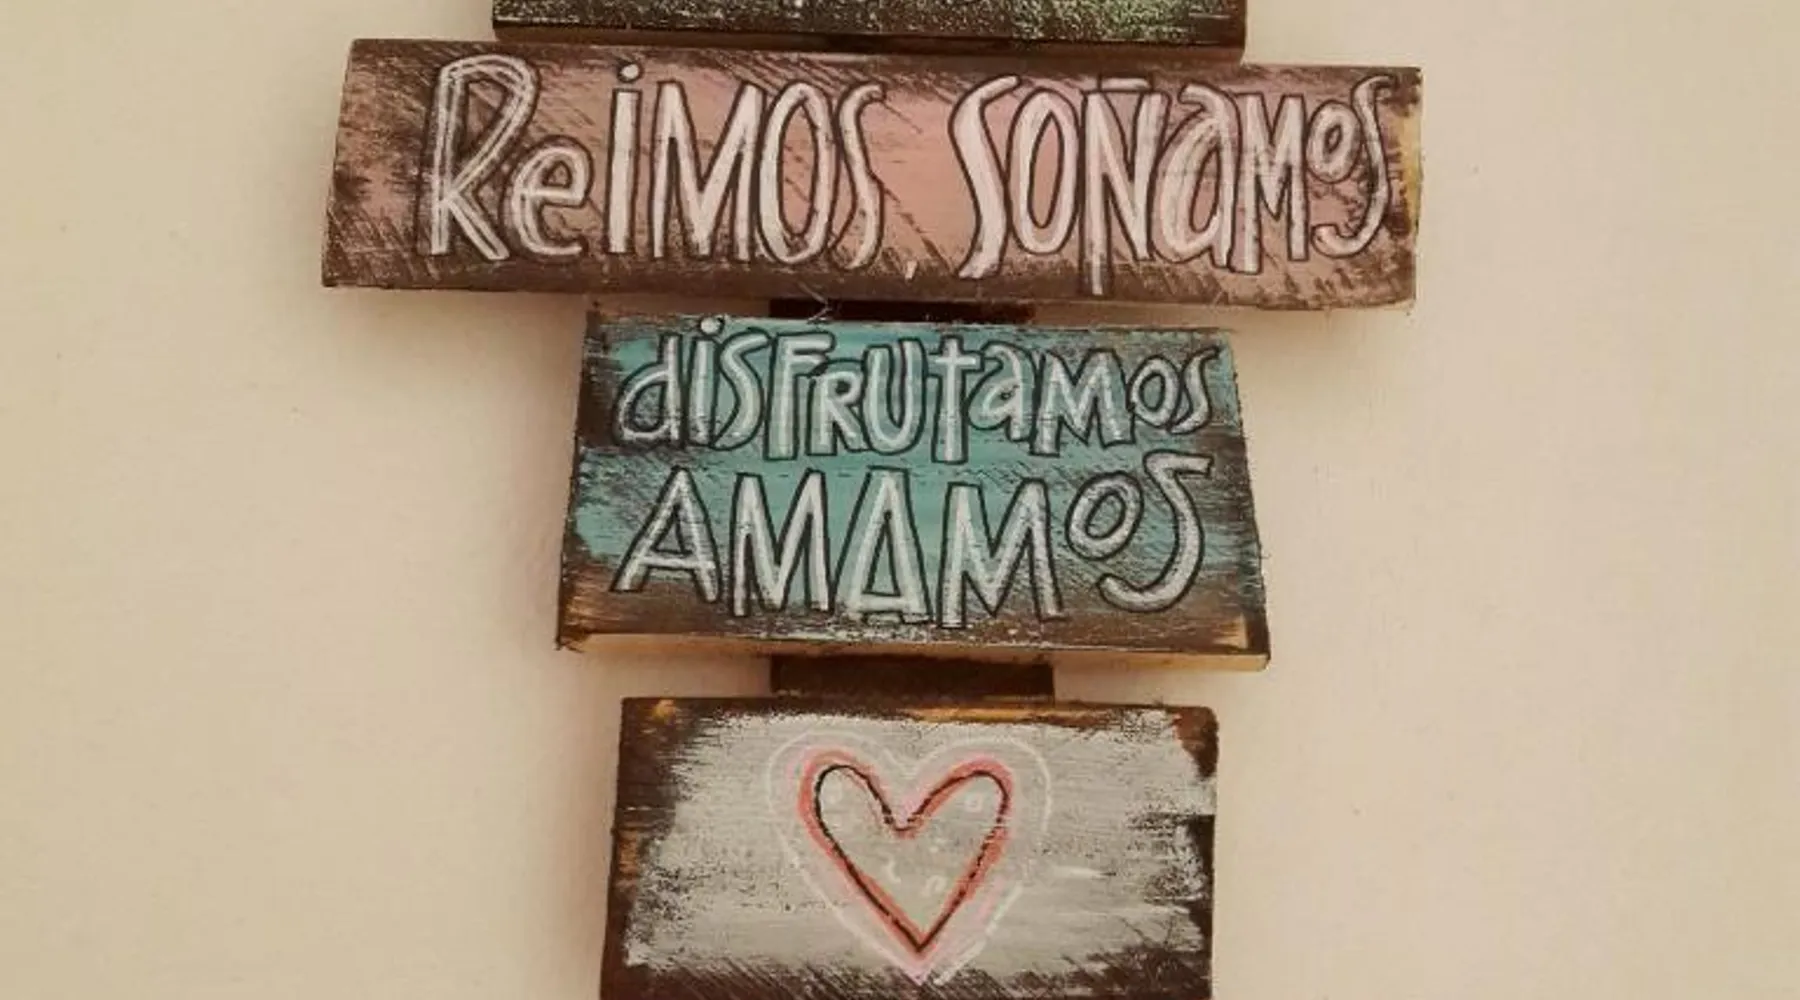 Reimos soñamos
disfrutamos
AMAMOS